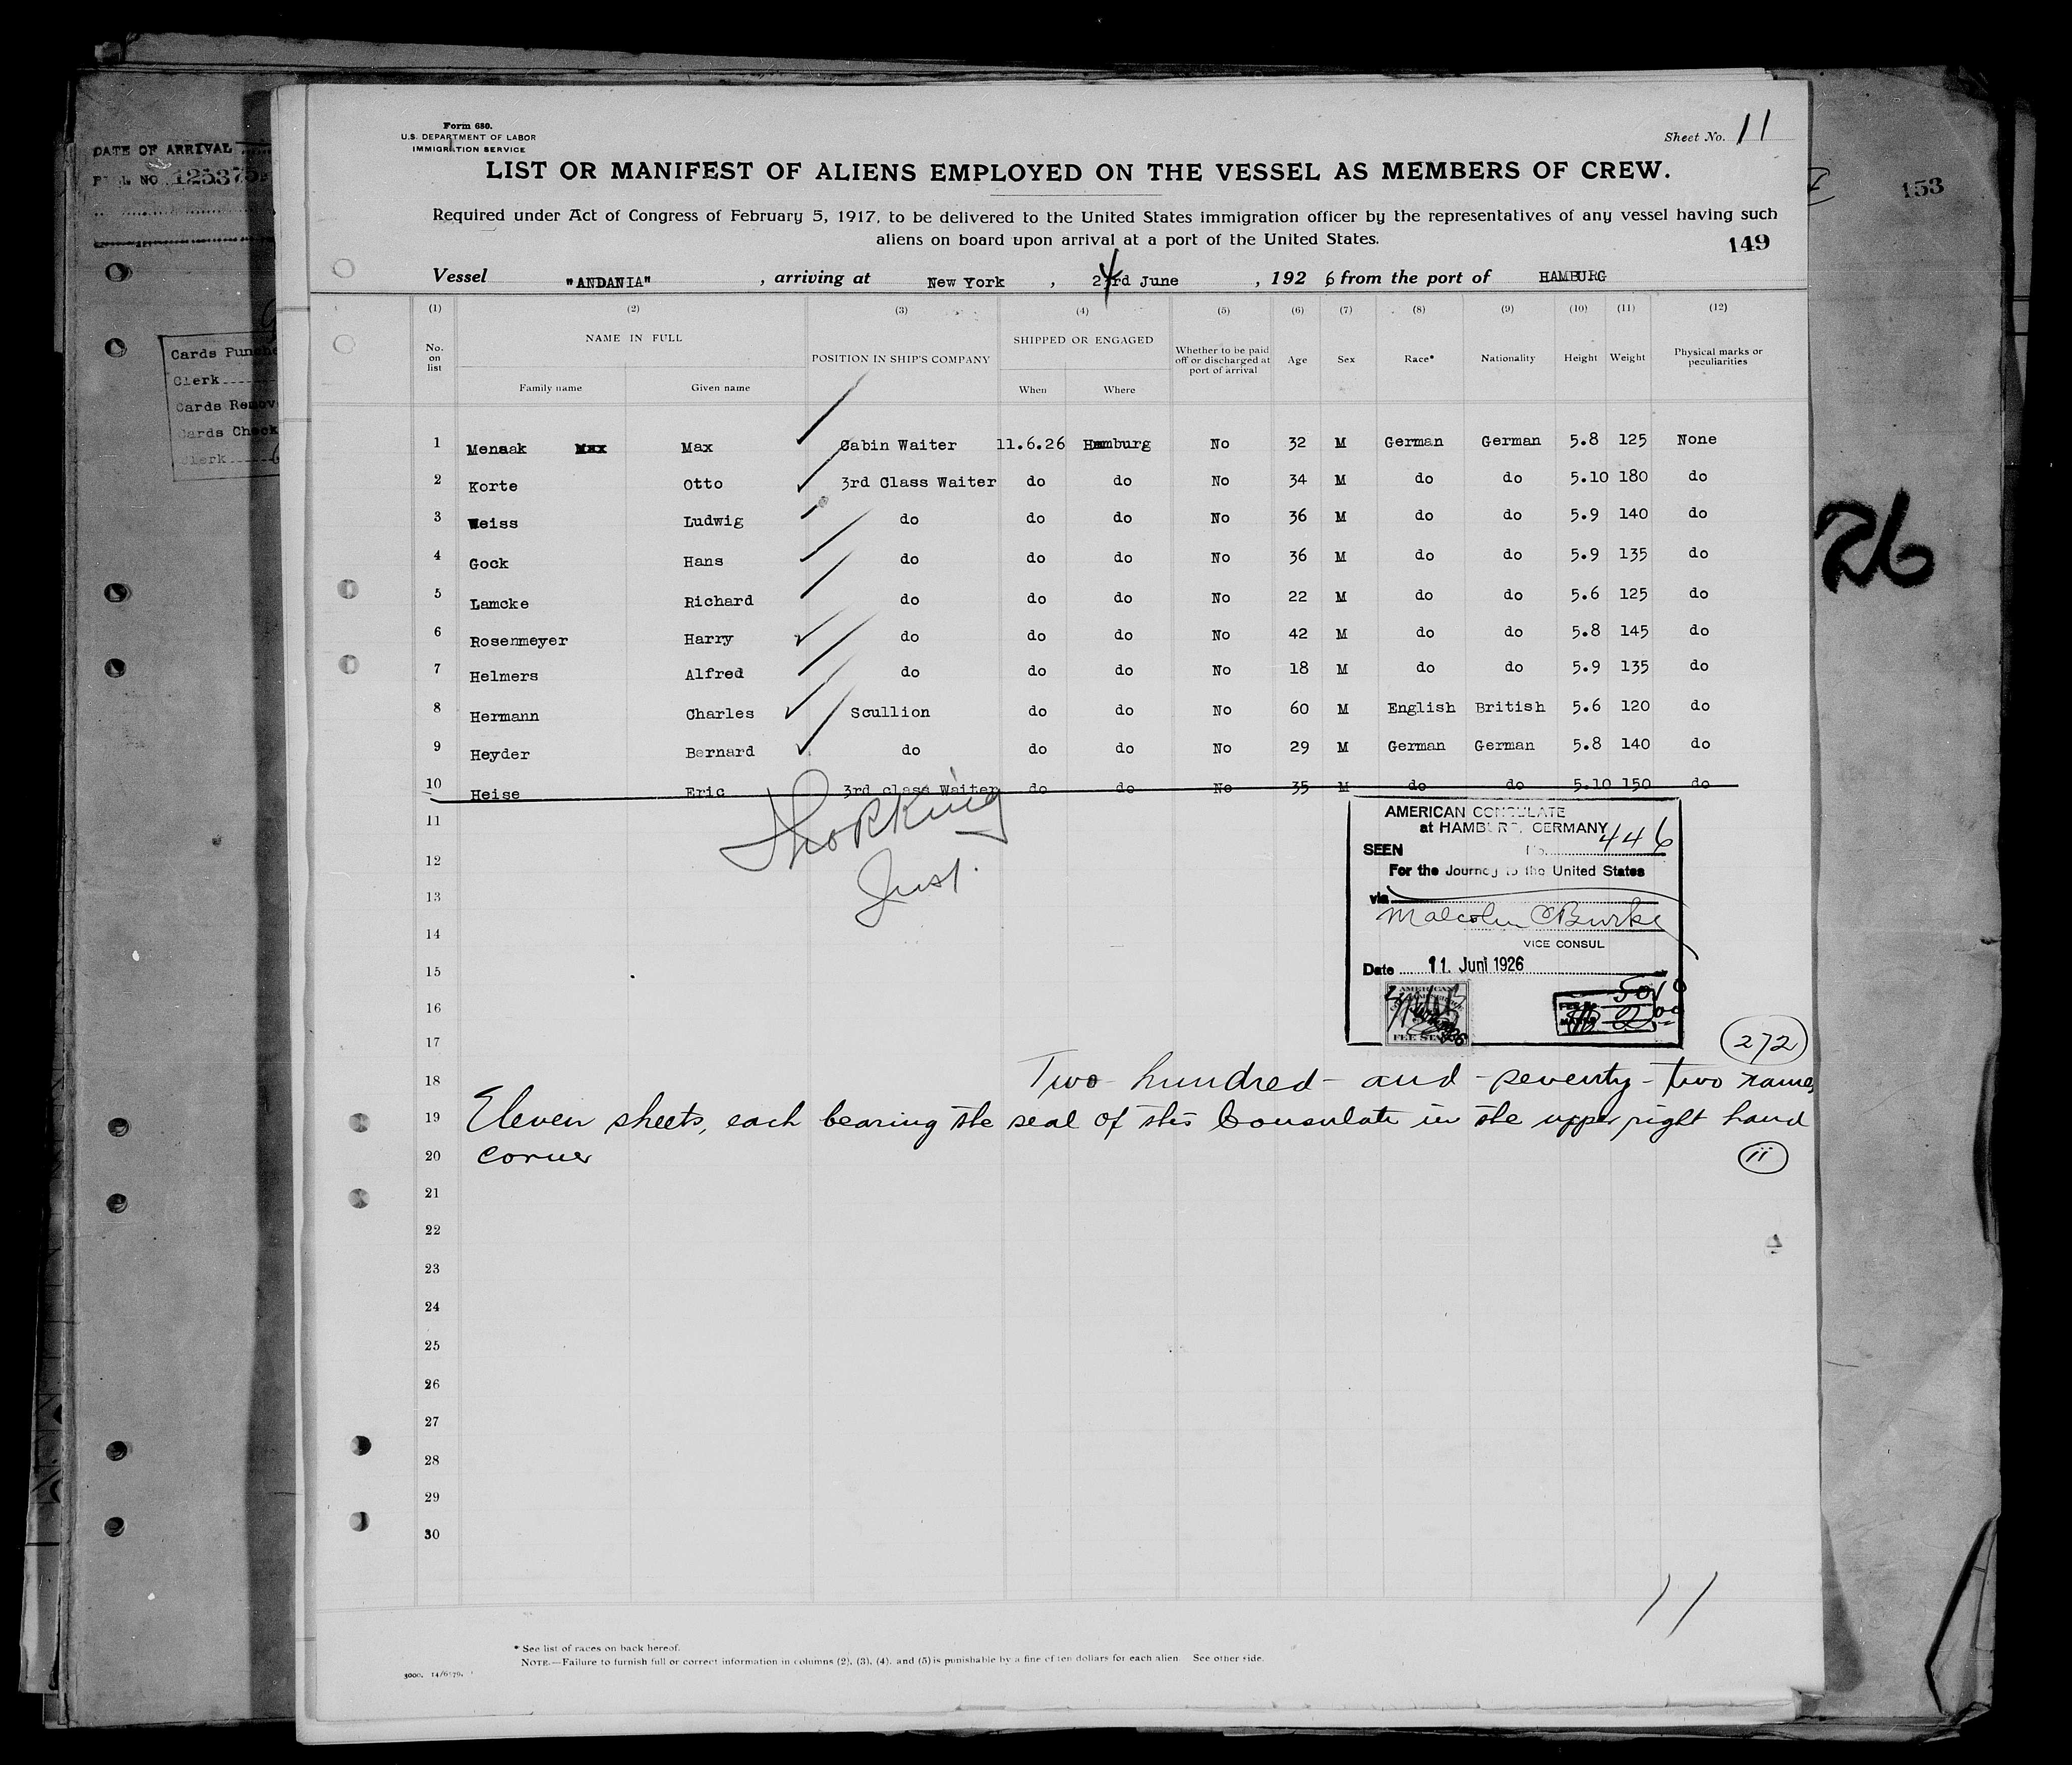 DATE OF ARRIVAL
NO 125375
Cards Punche
Clerk
Cards Remov
Cards Check
Clerk
153
26
Form 680.
U.S. DEPARTMENT OF LABOR
IMMIGRATION SERVICE
Sheet No. 11
LIST OR MANIFEST OF ALIENS EMPLOYED ON THE VESSEL AS MEMBERS OF CREW.
Required under Act of Congress of February 5, 1917, to be delivered to the United States immigration officer by the representatives of any vessel having such
aliens on board upon arrival at a port of the United States.
149
Vessel "ANDANIA", arriving at New York, 24rd June, 1926 from the port of HAMBURG
(1) (2) (3) (4) (5) (6) (7) (8) (9) (10) (11) (12)
No. on list NAME IN FULL POSITION IN SHIP'S COMPANY SHIPPED OR ENGAGED Whether to be paid off or discharged at port of arrival Age Sex Race* Nationality Height Weight Physical marks or peculiarities
Family name Given name When Where
1 Menaak Max Max Cabin Waiter 11.6.26 Hamburg No 32 M German German 5.8 125 None
2 Korte Otto 3rd Class Waiter do do No 34 M do do 5.10 180 do
3 Weiss Ludwig do do do No 36 M do do 5.9 140 do
4 Gock Hans do do do No 36 M do do 5.9 135 do
5 Lamcke Richard do do do No 22 M do do 5.6 125 do
6 Rosenmeyer Harry do do do No 42 M do do 5.8 145 do
7 Helmers Alfred do do do No 18 M do do 5.9 135 do
8 Hermann Charles Scullion do do No 60 M English British 5.6 120 do
9 Heyder Bernard do do do No 29 M German German 5.8 140 do
10 Heise Eric 3rd class Waiter do do No 35 M do do 5.10 150 do
11
12
13
14
15
16
17
AMERICAN CONSULATE
at HAMBURG, GERMANY
SEEN No. 446
For the Journey to the United States
via
Malcolm C Burke
VICE CONSUL
Date 11. Juni 1926
272
18 Two hundred - and - seventy - two names
19 Eleven sheets, each bearing the seal of this Consulate in the upper right hand
20 corner 11
21
22
23
24
25
26
27
28
29
30
11
* See list of races on back hereof.
NOTE.—Failure to furnish full or correct information in columns (2), (3), (4), and (5) is punishable by a fine of ten dollars for each alien. See other side.